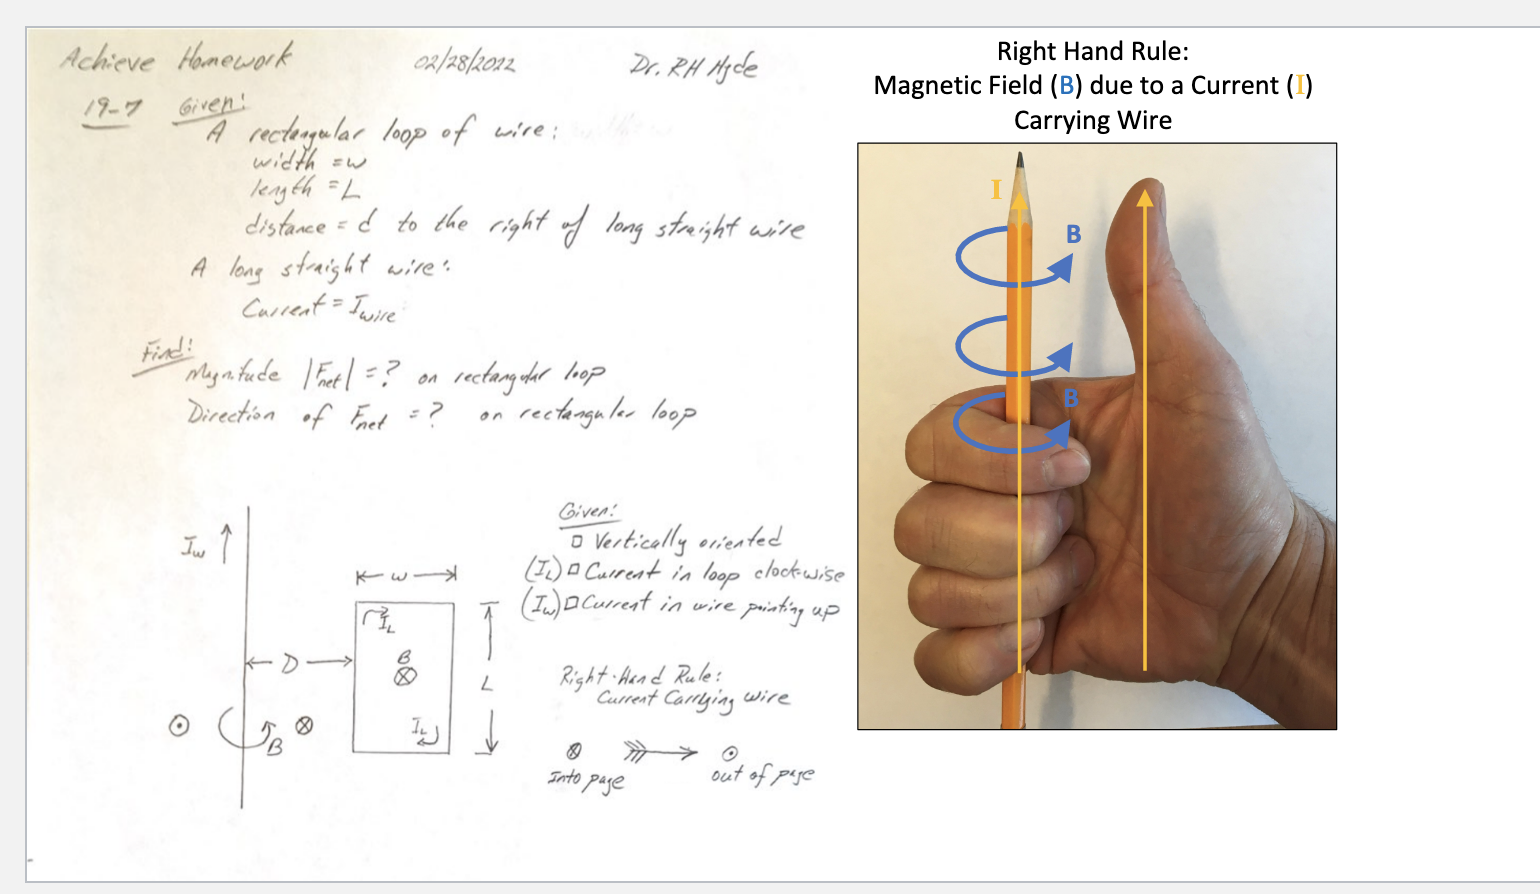 Achieve Homework 02/28/2022 Dr. RH Hyde
19-7 Given:
A rectangular loop of wire:
width = w
length = L
distance = d to the right of long straight wire
A long straight wire:
Current = Iwire
Find:
Magnitude |Fnet| = ? on rectangular loop
Direction of Fnet = ? on rectangular loop
Iw
w
IL
D
B
L
IL
B
Given:
Vertically oriented
(IL) Current in loop clockwise
(Iw) Current in wire pointing up
Right-Hand Rule:
Current Carrying wire
Into page
out of page
Right Hand Rule:
Magnetic Field (B) due to a Current (I)
Carrying Wire
I
B
B